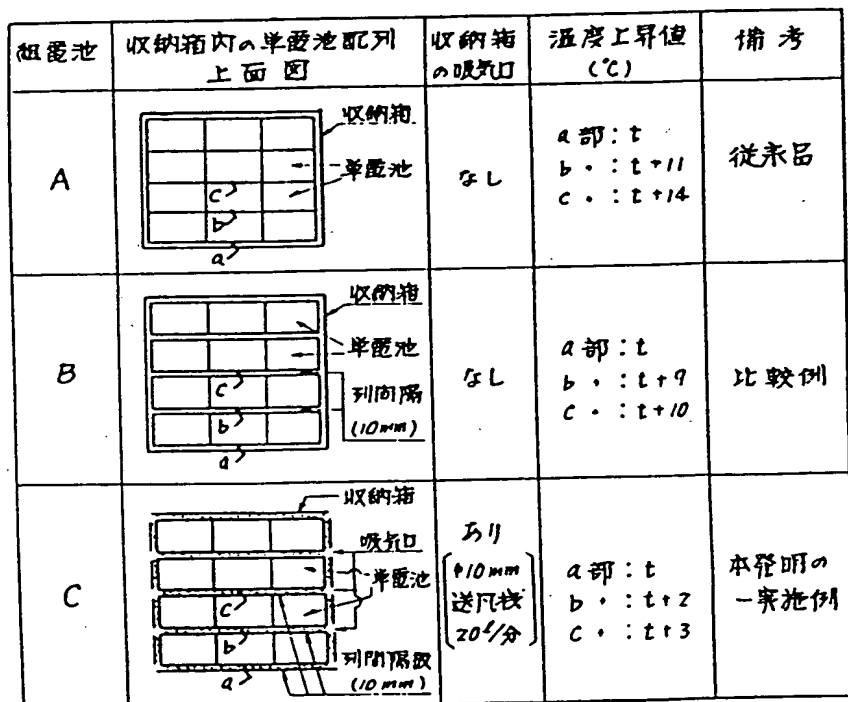 組電池
収納箱内の単電池配列
上面図
収納箱
の吸気口
温度上昇値
(℃)
備考
A
収納箱
単電池
c
b
a
なし
a部:t
b 〃 :t+11
c 〃 :t+14
従来品
B
収納箱
単電池
列間隔
(10mm)
c
b
a
なし
a部:t
b 〃 :t+9
c 〃 :t+10
比較例
C
収納箱
吸気口
単電池
c
b
a
列間隔
(10mm)
あり
φ10mm
送風機
20ℓ/分
a部:t
b 〃 :t+2
c 〃 :t+3
本発明の
一実施例